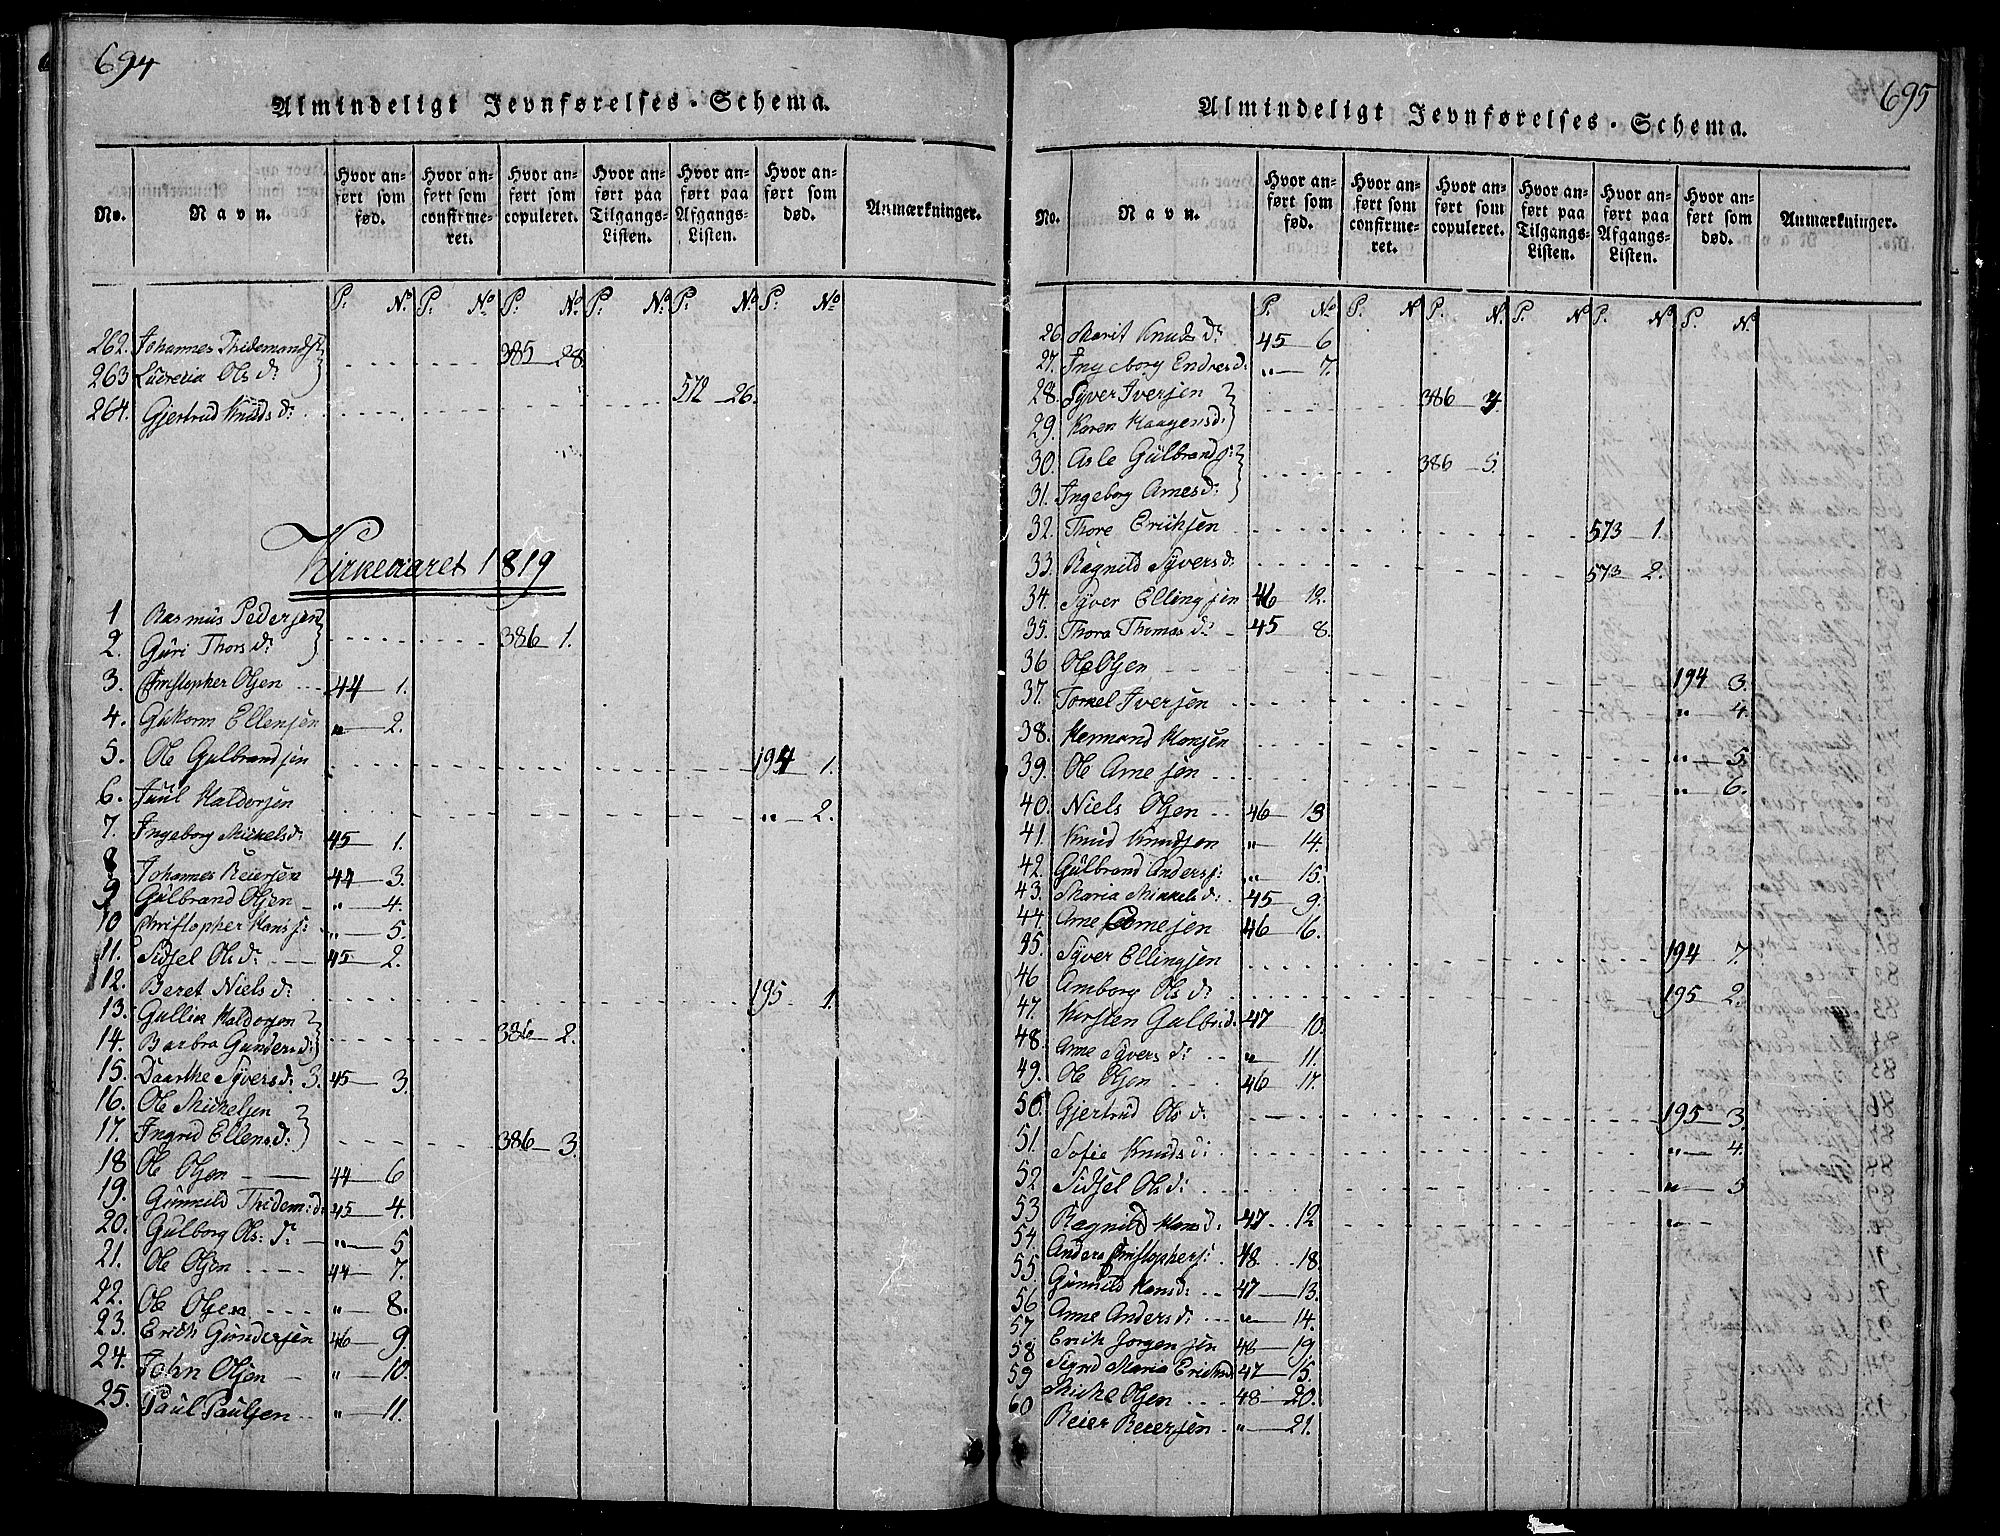 694
Almindeligt Jevnførelses-Schema.
No. Navn. Hvor anført som fød. Hvor anført som confirmeret. Hvor anført som copuleret. Hvor anført paa Tilgangs-Listen. Hvor anført paa Afgangs-Listen. Hvor anført som død. Anmærkninger.
P. No P. No P. No P. No P. No P. No
262. Johannes Thidemands: 385 28
263 Lucretia Ols d:
264. Gjertrud Knuds d: 572 26.
Kirkeaaret 1819
1 Rasmus Pedersen
2. Guri Thors d: 386 1.
3. Christopher Olsen 44 1.
4. Guttorm Ellensen " 2.
5. Ole Gulbrandsen 194 1.
6. Juul Haldorsen " 2.
7. Ingeborg Mickels d: 45 1.
8 Johannes Reiersen 44 3.
9 Gulbrand Olsen " 4.
10 Christopher Hans s: " 5.
11. Sidsel Ols d: 45 2.
12. Beret Niels d: 195 1.
13. Gullik Haldorsen
14. Barbra Gunders d: 386 2.
15. Daarthe Syvers d: 3. 45 3.
16. Ole Mickelsen
17. Ingrid Ellens d: 386 3.
18 Ole Olsen 44 6
19. Gunnild Thidem: d: 45 4.
20. Gulborg Ols: d: " 5
21. Ole Olsen 44 7.
22. Ole Olsen " 8.
23. Erich Gundersen 46 9.
24. John Olsen " 10.
25. Paul Paulsen " 11.
695
Almindeligt Jevnførelses-Schema.
No. Navn. Hvor anført som fød. Hvor anført som confirmeret. Hvor anført som copuleret. Hvor anført paa Tilgangs-Listen. Hvor anført paa Afgangs-Listen. Hvor anført som død. Anmærkninger.
P. No P. N P. N. P. N P. No P. N.
26. Marit Knuds d: 45 6
27. Ingeborg Endres d. " 7.
28. Syver Iversen 386 4.
29. Karen Haagens d:
30. Asle Gulbrands: 386 5.
31. Ingeborg Arnes d:
32. Thore Erichsen 573 1.
33. Ragnild Syvers d: 573 2.
34. Syver Ellingsen 46 12.
35. Thora Thomas d: 45 8.
36 Ole Olsen 194 3.
37. Torkel Iversen " 4.
38. Hermand Hansen " 5.
39. Ole Arnesen " 6.
40. Niels Olsen 46 13
41. Knud Knudsen " 14.
42. Gulbrand Anders s: " 15.
43. Maria Mikkels d: 45 9.
44. Arne Arnesen 46 16.
45. Syver Ellingsen 194 7
46 Amborg Ols d: 195 2.
47. Kirsten Gulbr: d: 47 10.
48. Anne Syvers d: " 11.
49. Ole Olsen 46 17.
50. Gjertrud Ols d: 195 3.
51. Sofie Knuds d: " 4.
52 Sidsel Ols d: " 5
53 Ragnild Hans d: 47 12
54. Anders Christophers: 48 18.
55. Gunnild Hans d: 47 13.
56 Anne Anders d: " 14.
57 Erik Jørgensen 48 19
58 Sigrd Maria Erichsd 47 15.
59 Mickel Olsen 48 20.
60 Reier Reiersen " 21.